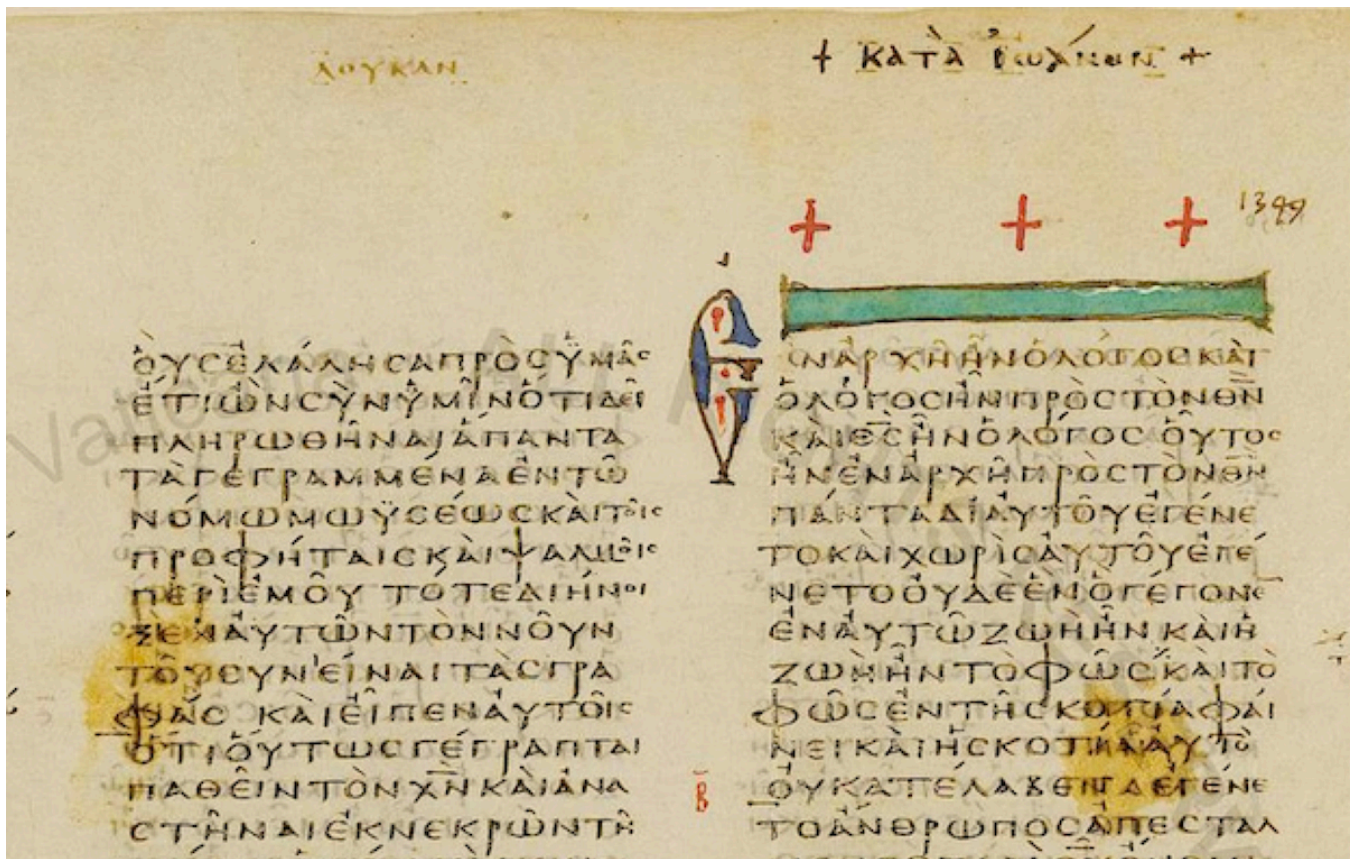 ΛΟΥΚΑΝ
+ ΚΑΤΑ ΙΩΑΝΝΗΝ +
1349
ΟΥϹΕΛΑΛΗϹΑΠΡΟϹΫΜΑϹ
ΕΤΙΩΝϹΥΝΫΜΙΝΟΤΙΔΕΙ
ΠΛΗΡΩΘΗΝΑΙΑΠΑΝΤΑ
ΤΑΓΕΓΡΑΜΜΕΝΑΕΝΤΩ
ΝΟΜΩΜΩΫϹΕΩϹΚΑΙΤΟΙϹ
ΠΡΟΦΗΤΑΙϹΚΑΙΨΑΛΜΟΙϹ
ΠΕΡΙΕΜΟΥ ΤΟΤΕΔΙΗΝΟΙ
ΞΕΝΑΥΤΩΝΤΟΝΝΟΥΝ
ΤΟΥϹΥΝΕΙΝΑΙΤΑϹΓΡΑ
ΦΑϹ ΚΑΙΕΙΠΕΝΑΥΤΟΙϹ
ΟΤΙΟΥΤΩϹΓΕΓΡΑΠΤΑΙ
ΠΑΘΕΙΝΤΟΝΧ̅Ν̅ΚΑΙΑΝΑ
ϹΤΗΝΑΙΕΚΝΕΚΡΩΝΤΗ
ΕΝΑΡΧΗΗΝΟΛΟΓΟϹΚΑΙ
ΟΛΟΓΟϹΗΝΠΡΟϹΤΟΝΘ̅Ν̅
ΚΑΙΘ̅Ϲ̅ΗΝΟΛΟΓΟϹ ΟΥΤΟϹ
ΗΝΕΝΑΡΧΗΠΡΟϹΤΟΝΘ̅Ν̅
ΠΑΝΤΑΔΙΑΥΤΟΥΕΓΕΝΕ
ΤΟΚΑΙΧΩΡΙϹΑΥΤΟΥΕΓΕ
ΝΕΤΟΟΥΔΕΕΝΟΓΕΓΟΝΕ
ΕΝΑΥΤΩΖΩΗΗΝ ΚΑΙΗ
ΖΩΗΗΝΤΟΦΩϹ ΚΑΙΤΟ
ΦΩϹΕΝΤΗϹΚΟΤΙΑΦΑΙ
ΝΕΙΚΑΙΗϹΚΟΤΙΑΑΥΤΟ
Β̅ ΟΥΚΑΤΕΛΑΒΕΝ ΕΓΕΝΕ
ΤΟΑΝΘΡΩΠΟϹΑΠΕϹΤΑΛ